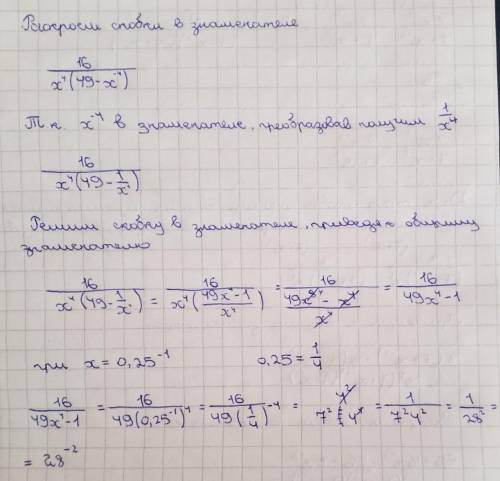 Раскроем скобки в знаменателе
16 / x⁴(49-x⁻⁴)
Т.к. x⁻⁴ в знаменателе, преобразовав получим 1/x⁴
16 / x⁴(49-1/x⁴)
Решим скобку в знаменателе, приведя к общему
знаменателю
16 / x⁴(49-1/x⁴) = 16 / x⁴(49x⁴-1 / x⁴) = 16 / (49x⁸-x⁴ / x⁴) = 16 / 49x⁴-1
при x = 0,25⁻¹ 0,25 = 1/4
16 / 49x⁴-1 = 16 / 49(0,25⁻¹)⁴ = 16 / 49(1/4)⁻⁴ = 4² / 7² 4⁴ = 1 / 7²4² = 1 / 28² =
= 28⁻²